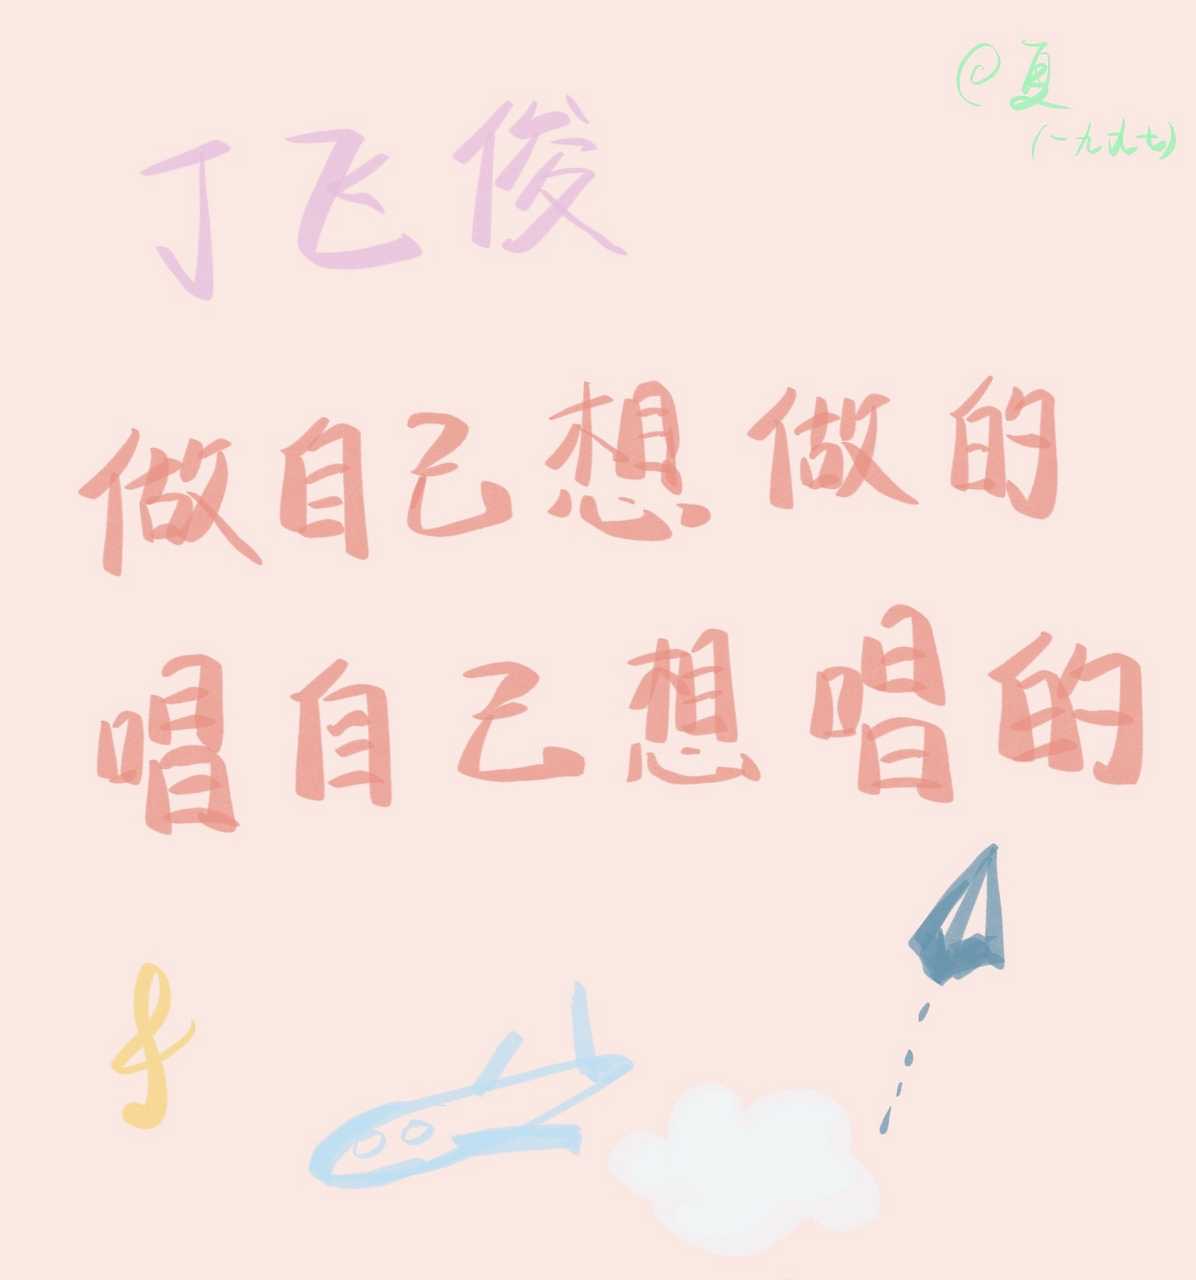 @夏
(一九九七)
丁飞俊
做自己想做的
唱自己想唱的